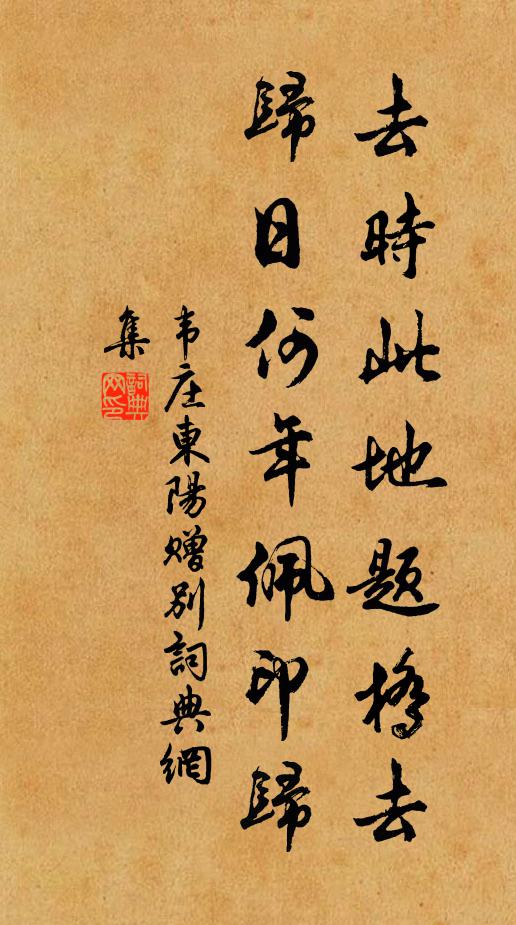 去時此地題橋去
歸日何年佩印歸
韦庄東陽贈別詞典網
集
詞典
网印